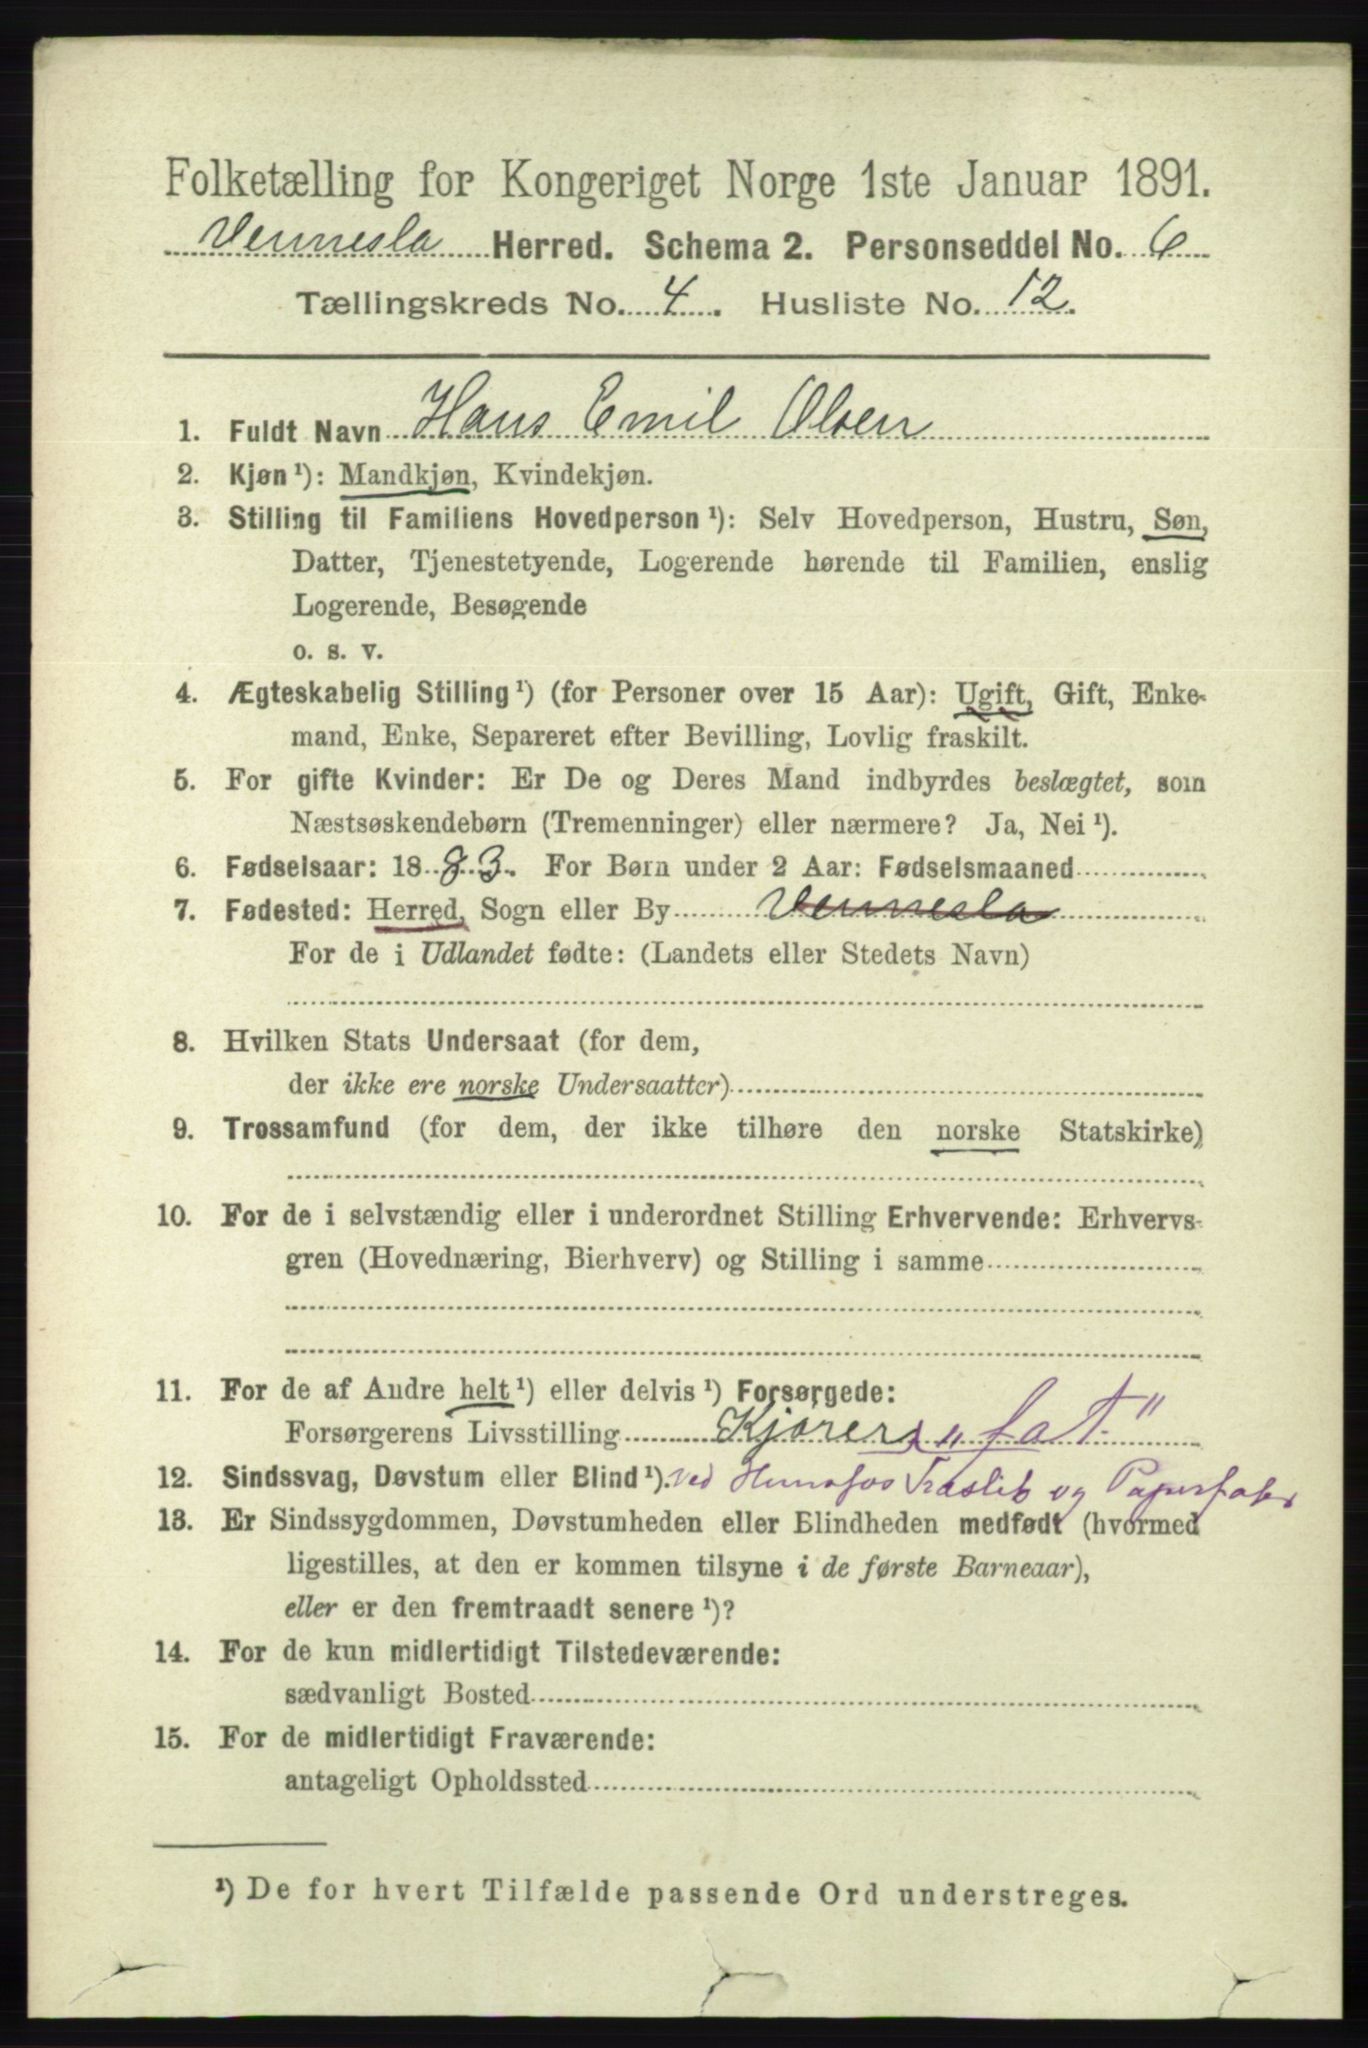 Folketælling for Kongeriget Norge 1ste Januar 1891.
Vennesla Herred. Schema 2. Personseddel No. 6
Tællingskreds No. 4. Husliste No. 12.
1. Fuldt Navn Hans Emil Olsen
2. Kjøn ¹): Mandkjøn, Kvindekjøn.
3. Stilling til Familiens Hovedperson ¹): Selv Hovedperson, Hustru, Søn,
Datter, Tjenestetyende, Logerende hørende til Familien, enslig
Logerende, Besøgende
o. s. v.
4. Ægteskabelig Stilling ¹) (for Personer over 15 Aar): Ugift, Gift, Enke-
mand, Enke, Separeret efter Bevilling, Lovlig fraskilt.
5. For gifte Kvinder: Er De og Deres Mand indbyrdes beslægtet, som
Næstsøskendebørn (Tremenninger) eller nærmere? Ja, Nei ¹).
6. Fødselsaar: 1883. For Børn under 2 Aar: Fødselsmaaned
7. Fødested: Herred, Sogn eller By Vennesla
For de i Udlandet fødte: (Landets eller Stedets Navn)
8. Hvilken Stats Undersaat (for dem,
der ikke ere norske Undersaatter)
9. Trossamfund (for dem, der ikke tilhøre den norske Statskirke)
10. For de i selvstændig eller i underordnet Stilling Erhvervende: Erhvervs-
gren (Hovednæring, Bierhverv) og Stilling i samme
11. For de af Andre helt ¹) eller delvis ¹) Forsørgede:
Forsørgerens Livsstilling Kjører „fat“
12. Sindssvag, Døvstum eller Blind ¹). ved Hunsfos Træslib og Papirfabr
13. Er Sindssygdommen, Døvstumheden eller Blindheden medfødt (hvormed
ligestilles, at den er kommen tilsyne i de første Barneaar),
eller er den fremtraadt senere ¹)?
14. For de kun midlertidigt Tilstedeværende:
sædvanligt Bosted
15. For de midlertidigt Fraværende:
antageligt Opholdssted
¹) De for hvert Tilfælde passende Ord understreges.